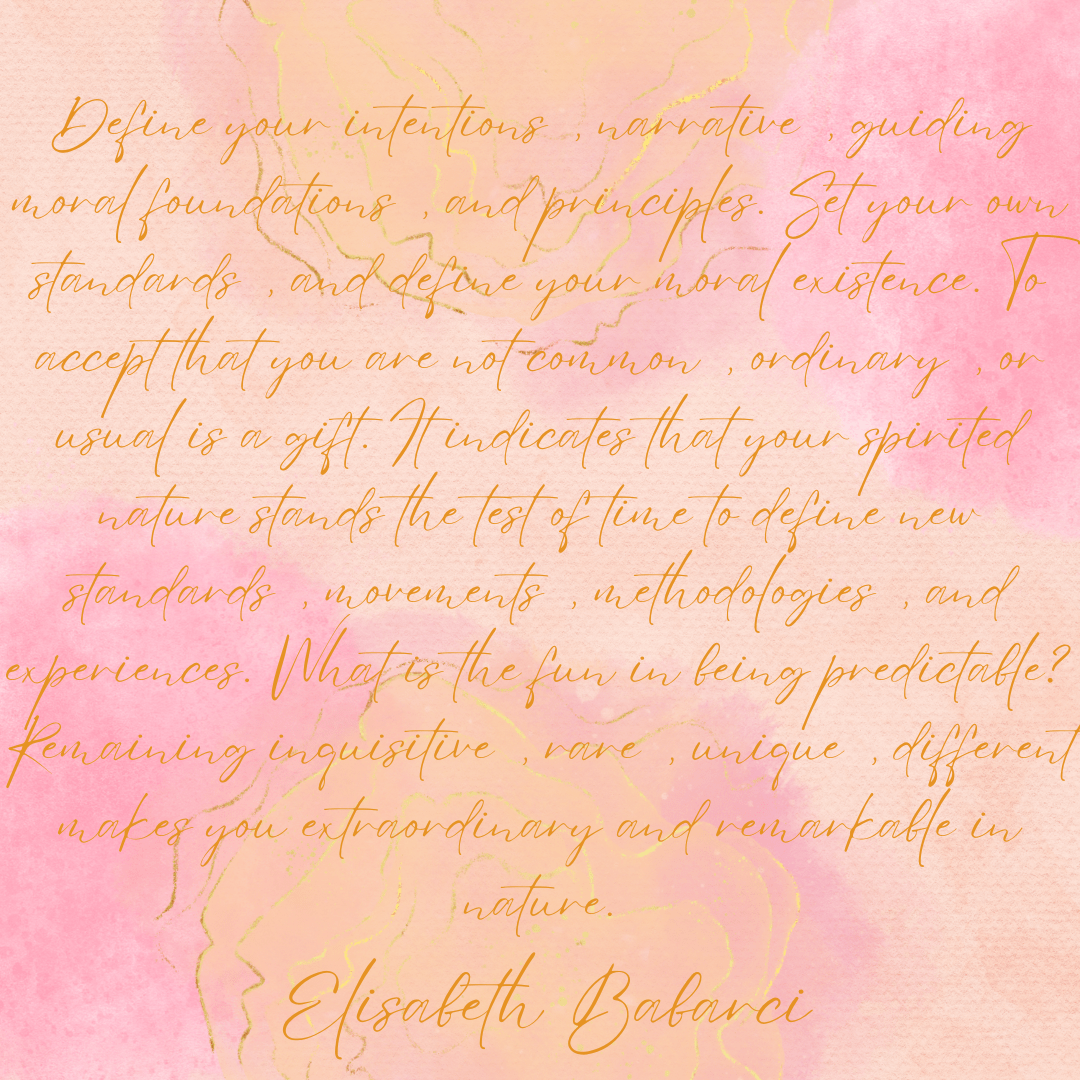 Define your intentions , narrative , guiding
moral foundations , and principles. Set your own
standards , and define your moral existence. To
accept that you are not common , ordinary , or
usual is a gift. It indicates that your spirited
nature stands the test of time to define new
standards , movements , methodologies , and
experiences. What is the fun in being predictable?
Remaining inquisitive , rare , unique , different
makes you extraordinary and remarkable in
nature.
Elisabeth Babarci